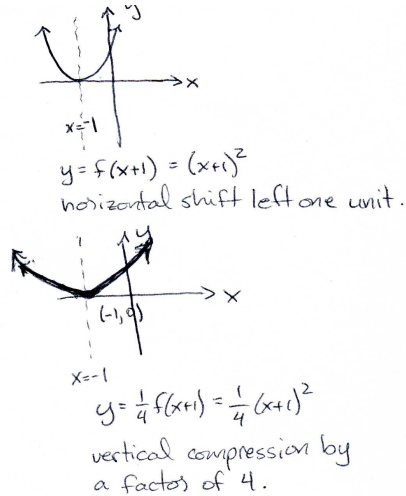 y
x
x=-1
y = f(x+1) = (x+1)²
horizontal shift left one unit.
y
x
(-1,0)
x=-1
y = 1/4 f(x+1) = 1/4 (x+1)²
vertical compression by
a factor of 4.